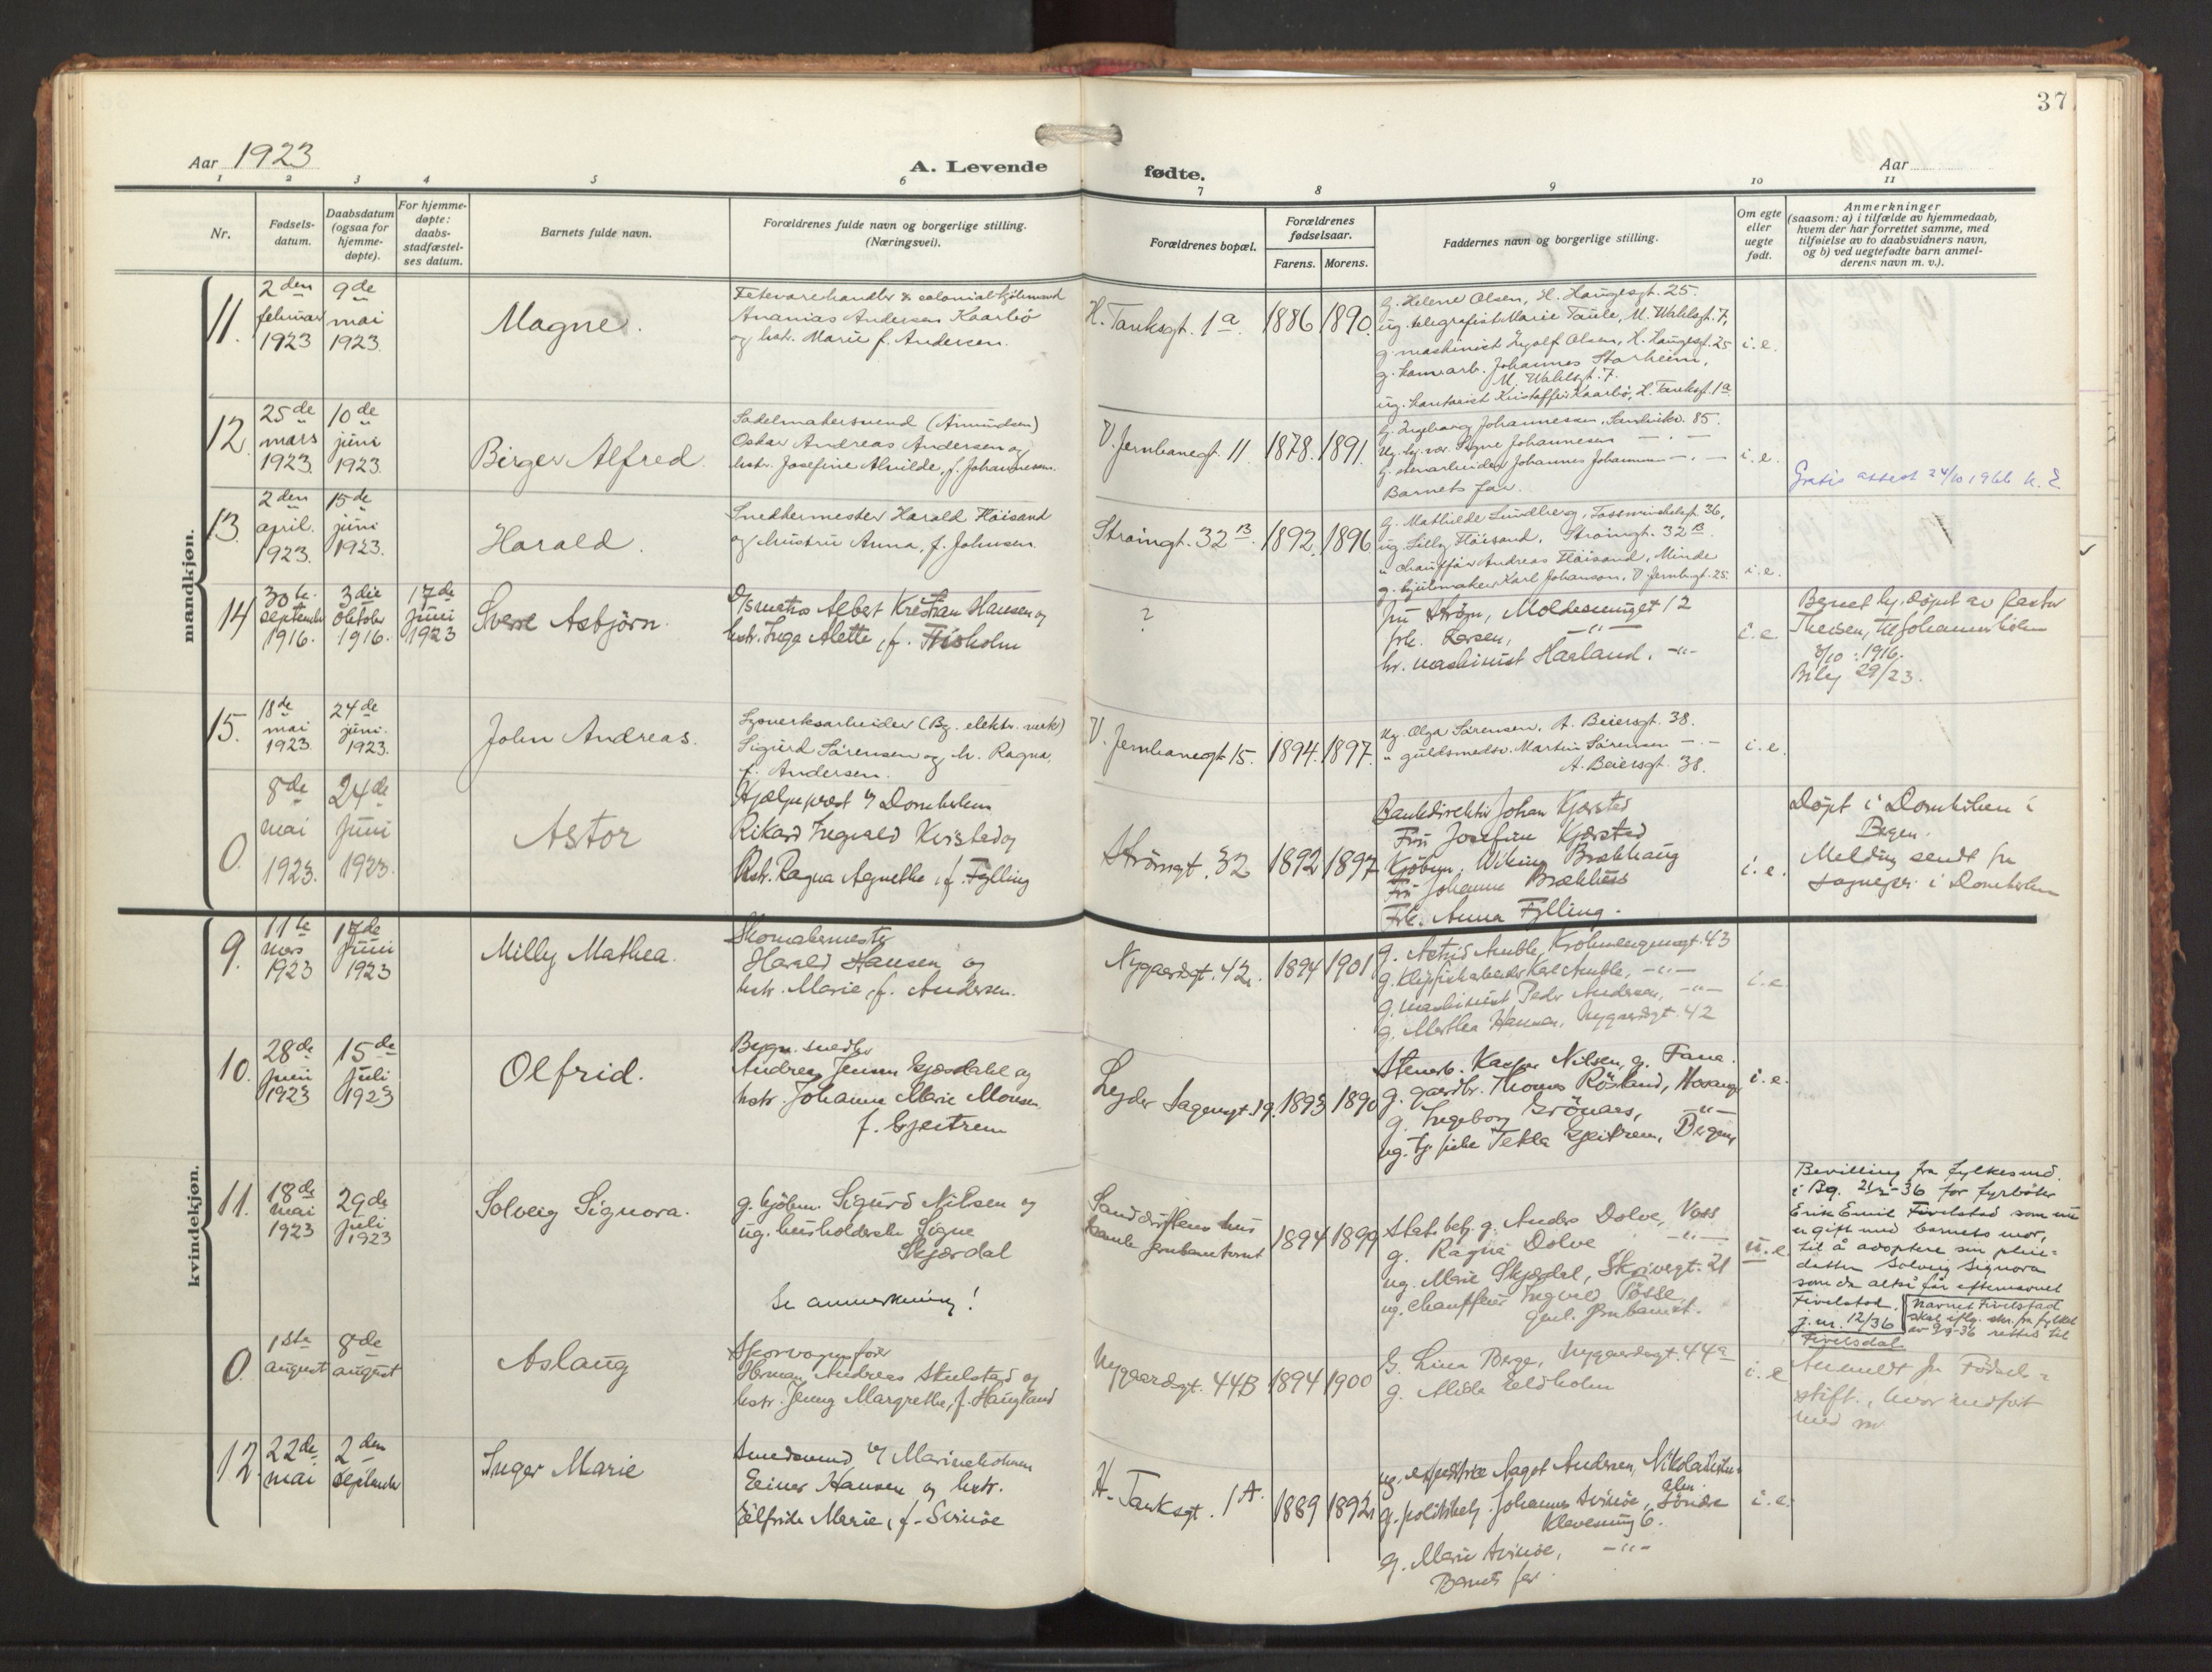 37
Aar 1923
A. Levende
fødte.
Aar
1 2 3 4 5 6 7 8 9 10 11
Nr.
Fødsels-
datum.
Daabsdatum
(ogsaa for
hjemme-
døpte).
For hjemme-
døpte:
daabs-
stadfæstel-
ses datum.
Barnets fulde navn.
Forældrenes fulde navn og borgerlige stilling.
(Næringsvei).
Forældrenes bopæl.
Forældrenes
fødselsaar.
Farens. Morens.
Faddernes navn og borgerlige stilling.
Om egte
eller
uegte
født.
Anmerkninger
(saasom: a) i tilfælde av hjemmedaab,
hvem der har forrettet samme, med
tilføielse av to daabsvidners navn,
og b) ved uegtefødte barn anmel-
derens navn m. v.).
mandkjøn.
11.
2den
februar
1923
9de
mai
1923.
Magne.
Fetevarehandler & colonial-kjöbmand
Ananias Andersen Kaarbö
og hstr. Marie f. Andersen.
H. Tanksgt. 1a.
1886
1890.
g. Helene Olsen, H. Haugesgt. 25.
ug. telegrafist Marie Taule, M. Wahlsgt. 7,
g. maskinist Ingolf Olsen, H. Haugesgt. 25
g. kom. arb. Johannes Storheim,
M. Wahlsgt. 7.
ug. kontorist Kristoffer Kaarbö, H. Tanksgt. 1a
i. e.
12.
25de
mars
1923.
10de
juni
1923.
Birger Alfred.
Sadelmakersvend (Amundsen)
Oskar Andreas Andersen og
hstr. Josefine Alvilde, f. Johannesen.
V. Jernbanegt. 11
1878.
1891.
G. Ingeborg Johannessen, Sandviksv. 85.
Ug. Signe Johannesen — . —
G. stenarbeider Johannes Johannesen — . —
Barnets far.
i. e.
Gratis attest 24/10 1966
13.
2den
april.
1923.
15de
juni
1923.
Harald.
Snedkermester Harald Flöisand
og hustru Anna, f. Johnsen.
Strömgt. 32B.
1892.
1896
G. Mathilde Lundberg, 36,
ug. Lilly Flöisand, Strömgt. 32B.
" chauffør Andreas Flöisand, Minde
g. hjulmaker Karl Johanson, V. Jernbgt. 25.
i. e.
14
30te.
september
1916.
3die
oktober
1916.
17de
juni
1923
Sverre Asbjörn.
Albert Kristian Hansen og
hstr. Inga Alette, f. Fisholm
?
fru Ström, Moldesmuget 12
frk. Larsen, —"—
hr. maskinist Haaland, —"—
i. e.
Barnet hj. döpt av pastor
Theisen, til Johanneskirken
3/10 1916.
Bilag 29/23.
15.
18de
mai
1923.
24de
juni.
1923.
John Andreas.
Lysverksarbeider (Bg. elektr. verk)
Sigurd Sörensen og h. Ragna,
f. Andersen.
V. Jernbanegt 15.
1894.
1897.
Ug. Olga Sörensen, A. Beiersgt. 38.
" guldsmedsv. Martin Sörensen — . —
A. Beiersgt. 38.
i. e.
0.
8de
mai
1923.
24de
juni
1923.
Astor
Hjælpeprest v/ Domkirken
Rikard Ingvald Kvistad og
Hstr. Ragna Agnethe, f. Fylling
Strömgt. 32
1892
1897
Bankdirektör Johan Kjerstad
Fru Josefine Kjerstad
Kjöbm. Brækhaug
Fru Johanne Brækhus
Frk. Anna Fylling.
i. e.
Döpt i Domkirken i
Bergen.
Melding sendt fra
sognepr. i Domkirken
kvindekjøn.
9.
11te
mars
1923
17de
juni
1923
Milly Mathea.
Skomakermester
Harald Hansen og
hstr. Marie, f. Andersen.
Nygaardsgt. 42.
1894
1901
g. Astrid Amble, Krohnengensgt. 43
g. Karl Amble, —"—
g. maskinist Peder Andersen, —"—
g. Marthea Hansen, Nygaardsgt. 42
i. e.
10.
28de
juni
1923
15de
juli
1923
Olfrid.
Bygn. snedker
Andreas Jensen Gjesdahl og
hstr. Johanne Marie Monsen
f. Gjeitrem
Lyder Sagensgt. 19.
1893
1890
Stenarb. Nilsen, g. Fane.
g. gaardbr. Thomas Rösland,
g. Ingeborg Grönaas, —"—
ug. tj.pike Tekla Gjeitrem, Bergen
i. e.
11.
18de
mai
1923
29de
juli
1923
Solveig Signora.
g. kjöbm. Sigurd Nilsen og
ug. husholderske Signe
Skjerdal
Se anmerkning!
Sanddriftens hus
gamle jernbanetomt
1894
1899
Stat. betj. g. Anders Dolve, Voss
g. Ragna Dolve —"—
ug. Marie Skjerdal, Skrivergt. 21
ug. chauffeur Ingvald Pösse,
Gml. Jernbanest.
u. e.
Bevilling fra fylkesmd.
i Bg. 21/2-36 for fyrböter
Erik Emil Fivelstad som nu
er gift med barnets mor,
til å adoptere sin pleie-
datter Solveig Signora
som da altså får efternavnet
Fivelstad.
j.nr. 12/36
Navnet Fivelstad
skal iflg. skr. fra fylket
av 9/3-36 rettes til
Fivelsdal
0.
1ste
august
8de
august
Aslaug
Skorvognsförer
Herman Andreas Skulstad og
hstr. Jenny Margrethe, f. Haugland
Nygaardsgt. 44B
1894
1900
G. Lina Berge, Nygaardsgt. 44a
g. Alida Eldholm
i. e
Anmeldt fra Födsels-
stift., hvor indfört
med nr
12.
22de.
mai
2den
september
Inger Marie
Smedsvend v/ Marineholmen
Einar Hansen og hstr.
Elfride Marie, f. Svinöe
H. Tanksgt. 1A.
1889
1892
ug. expeditrice Magot Andersen, Nikolaikirke-
alm.
g. politibetj. Johannes Svinöe, Söndre
Klevesmug 6.
g. Marie Svinöe, —"—
Barnets far.
i. e.